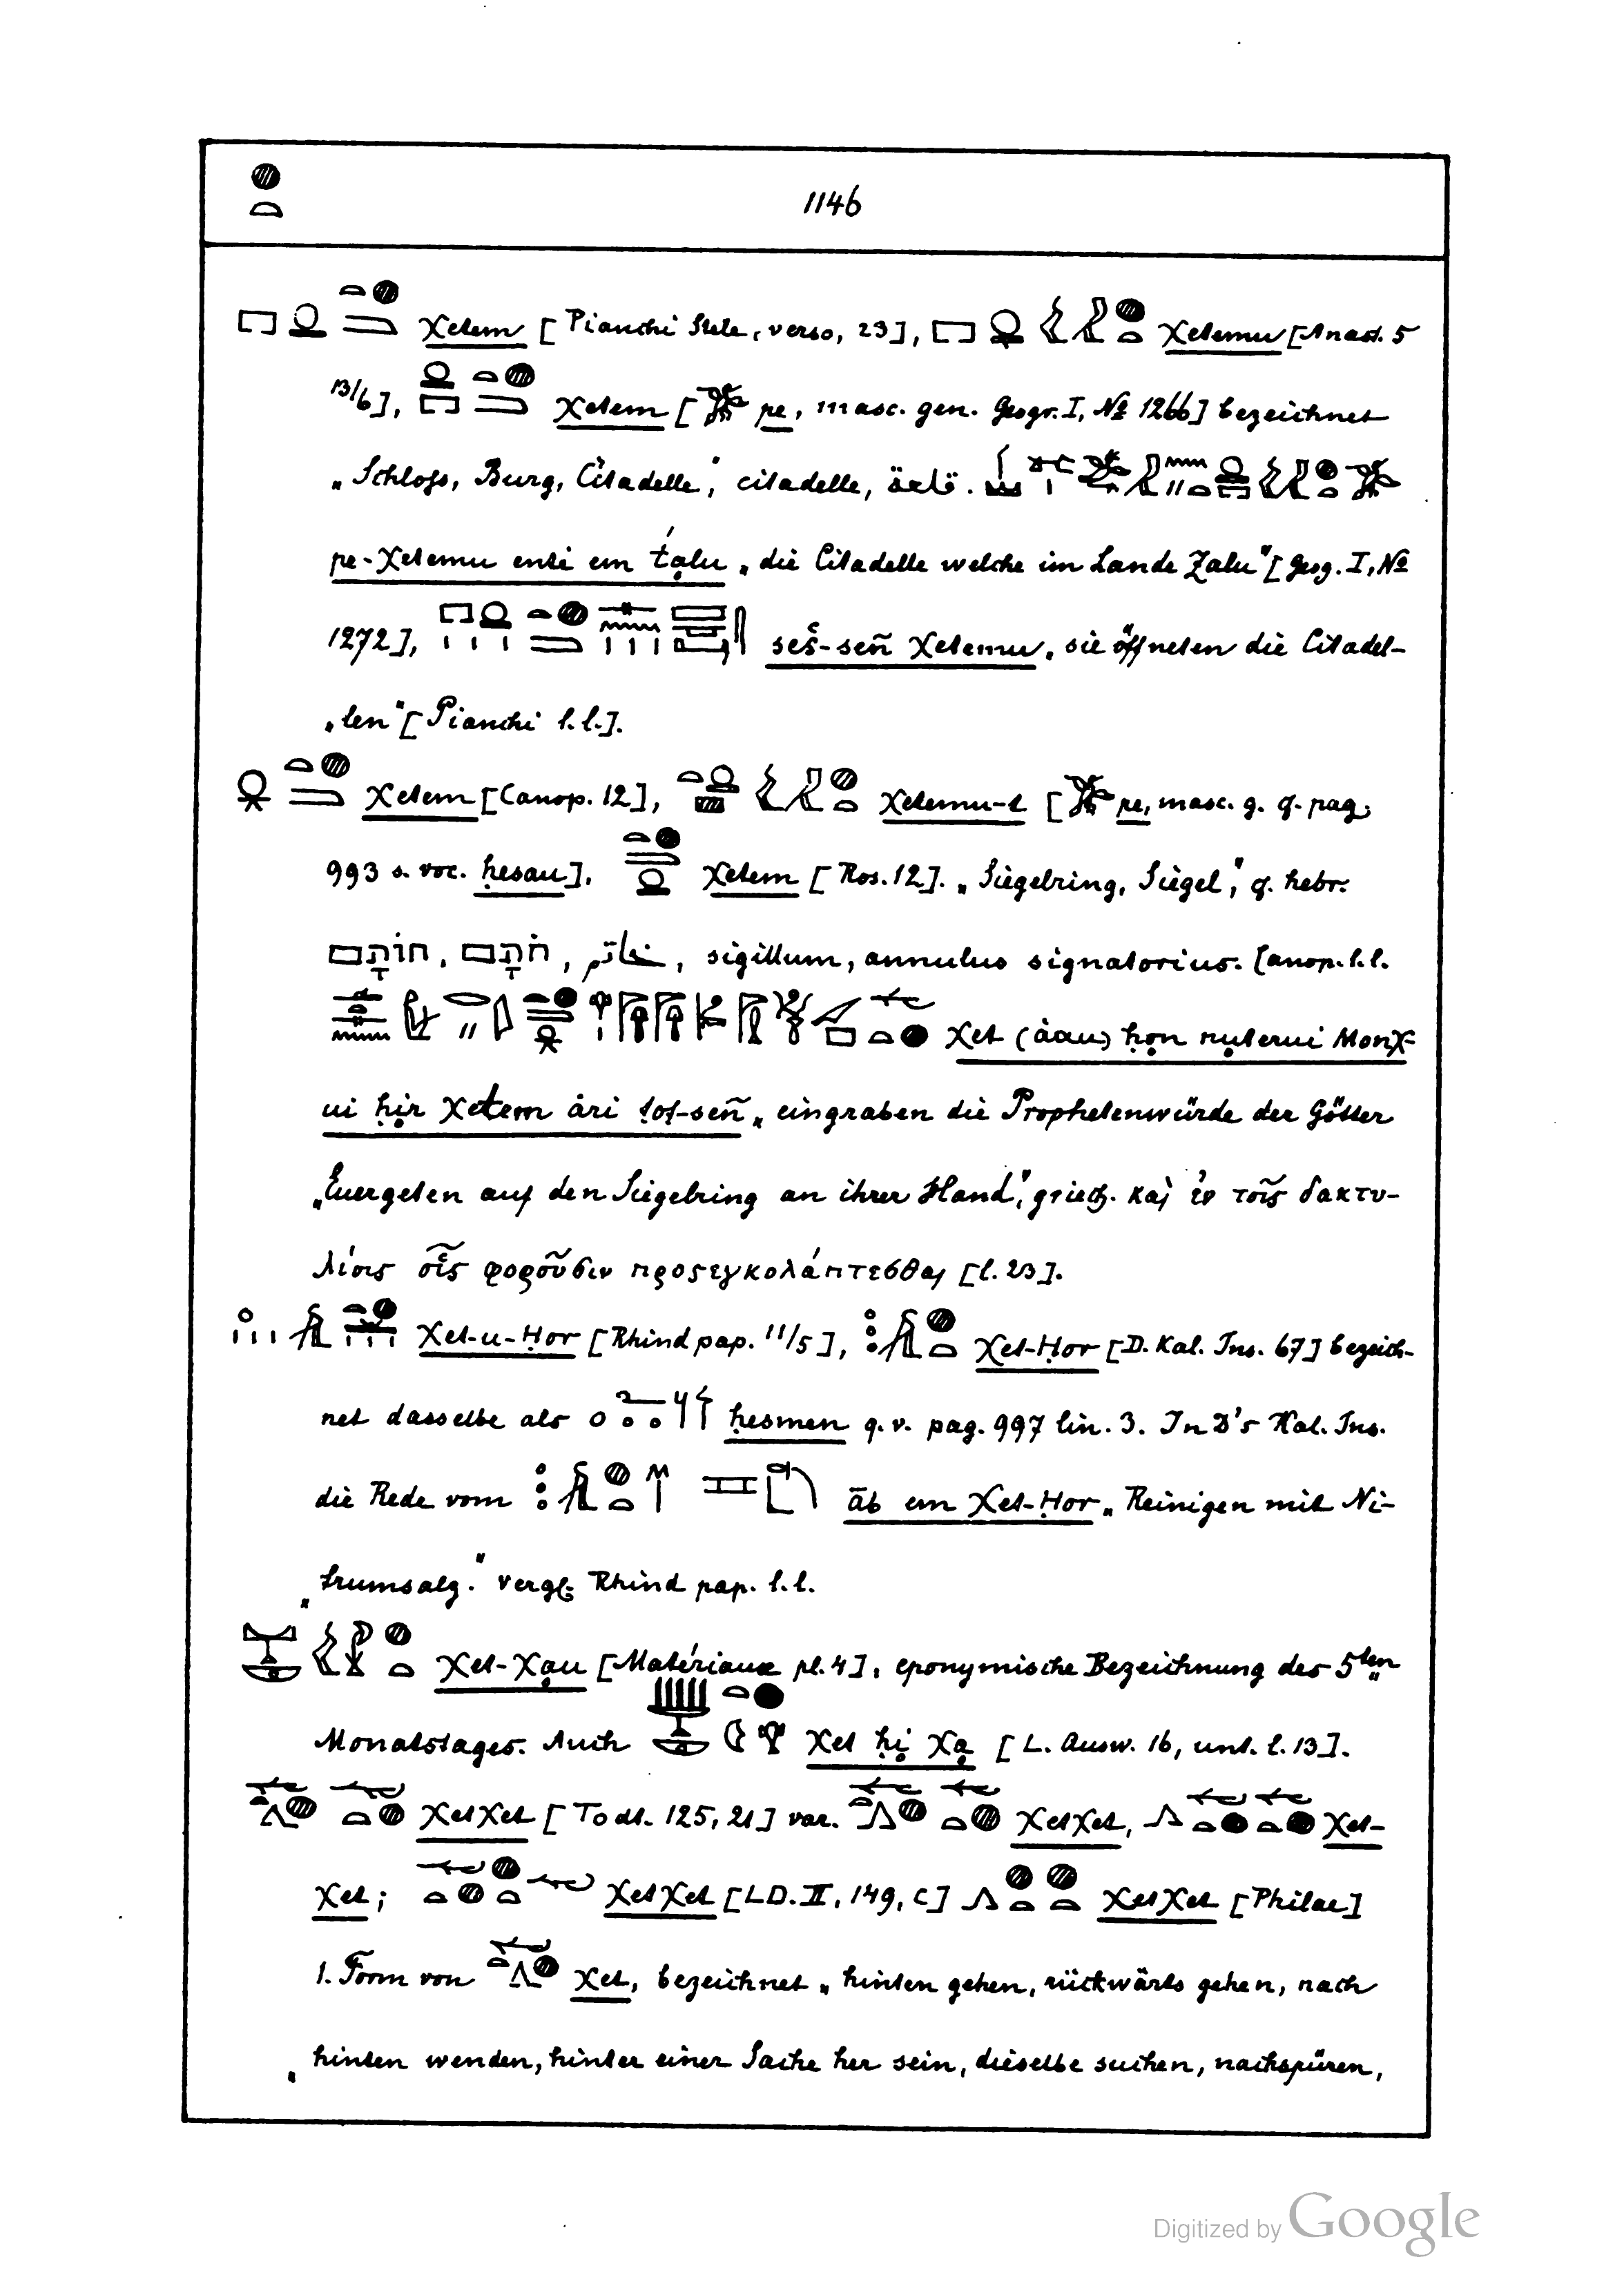 1146
χetem [Pianchi Stele, verso, 23], χetemu [Anast. 5
13/6], χetem [pe, masc. gen. Geogr. I, № 1266] bezeichnet
„Schloss, Burg, Citadelle“, citadelle,
pe-χetemu enti em t́alu „die Citadelle welche im Lande Zalu“ [Geog. I, №
1272], seš-señ χetemu, sie öffneten die Citadel-
„len“ [Pianchi l.l.].
χetem [Canop. 12], χetemu-t [pe, masc. g. cf. pag.
993 s. voc. ḥesau], χetem [Ros. 12]. „Siegelring, Siegel“, cf. hebr.
חוֹתָם, חֹתָם, خاتم, sigillum, annulus signatorius. Canop. l.l.
χet (àau) ḥon nuterui Monχ-
ui ḥir χetem àri tot-señ „eingraben die Prophetenwürde der Götter
„Euergeten auf den Siegelring an ihrer Hand“, griech. καὶ ἐν τοῖς δακτυ-
λίοις οἷς φοροῦσιν προςεγκολάπτεσθαι [l. 23].
χet-u-Ḥor [Rhind pap. 11/5], χet-Ḥor [D. Kal. Ins. 67] bezeich-
net dasselbe als ḥesmen q.v. pag. 997 lin. 3. In D's Kal. Ins.
die Rede vom āb em χet-Ḥor „Reinigen mit Ni-
„trumsalz.“ vergl. Rhind pap. l.l.
χet-χau [Matériaux pl. 4], eponymische Bezeichnung des 5ten
Monatstages. Auch χet ḥi χa [L. Ausw. 16, unt. l. 13].
χetχet [Todt. 125, 21] var. χetχet, χet-
χet; χetχet [LD. II, 149, c] χetχet [Philae]
1. Form von χet, bezeichnet „hinten gehen, rückwärts gehen, nach
„hinten wenden, hinter einer Sache her sein, dieselbe suchen, nachspüren,
Digitized by Google